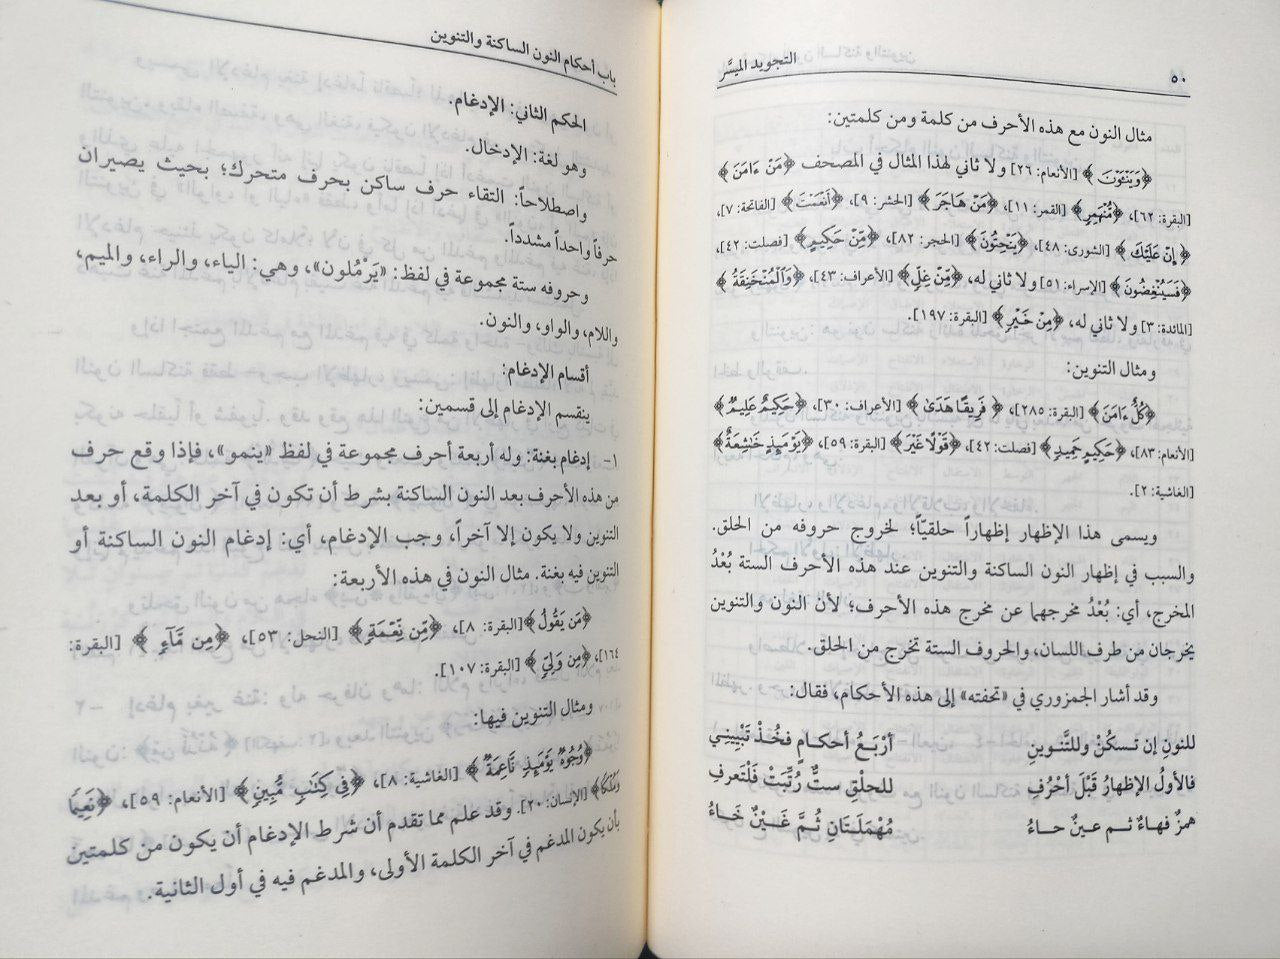 ٥٠ التجويد الميسَّر
مثال النون مع هذه الأحرف من كلمة ومن كلمتين:
﴿وَيَنْـَٔوْنَ﴾ [الأنعام: ٢٦] ولا ثاني لهذا المثال في المصحف ﴿مَنْ ءَامَنَ﴾
[البقرة: ٦٢]، ﴿مُّنْهَمِرٍ﴾ [القمر: ١١]، ﴿مَنْ هَاجَرَ﴾ [الحشر: ٩]، ﴿أَنْعَمْتَ﴾ [الفاتحة: ٧]،
﴿إِنْ عَلَيْكَ﴾ [الشورى: ٤٨]، ﴿يَنْحِتُونَ﴾ [الحجر: ٨٢]، ﴿مِّنْ حَكِيمٍ﴾ [فصلت: ٤٢]،
﴿فَسَيُنْغِضُونَ﴾ [الإسراء: ٥١] ولا ثاني له، ﴿مِّنْ غِلٍّ﴾ [الأعراف: ٤٣]، ﴿وَٱلْمُنْخَنِقَةُ﴾
[المائدة: ٣] ولا ثاني له، ﴿مِنْ خَيْرٍ﴾ [البقرة: ١٩٧].
ومثال التنوين:
﴿كُلٌّ ءَامَنَ﴾ [البقرة: ٢٨٥]، ﴿فَرِيقًا هَدَىٰ﴾ [الأعراف: ٣٠]، ﴿حَكِيمٌ عَلِيمٌ﴾
[الأنعام: ٨٣]، ﴿حَكِيمٍ حَمِيدٍ﴾ [فصلت: ٤٢]، ﴿قَوْلًا غَيْرَ﴾ [البقرة: ٥٩]، ﴿يَوْمَئِذٍ خَٰشِعَةٌ﴾
[الغاشية: ٢].
ويسمى هذا الإظهار إظهاراً حلقيّاً؛ لخروج حروفه من الحلق.
والسبب في إظهار النون الساكنة والتنوين عند هذه الأحرف الستة بُعْدُ
المخرج، أي: بُعْدُ مخرجهما عن مخرج هذه الأحرف؛ لأن النون والتنوين
يخرجان من طرف اللسان، والحروف الستة تخرج من الحلق.
وقد أشار الجمزوري في «تحفته» إلى هذه الأحكام، فقال:
للنونِ إن تسكُنْ وللتَّنوينِ أرْبَعُ أحكامٍ فخُذْ تَبْيِيني
فالأولُ الإظهارُ قَبْلَ أحْرُفِ للحلْقِ ستٌّ رُتِّبَتْ فَلْتَعرفِ
همزٌ فهاءٌ ثم عينٌ حاءُ مُهْمَلَتَانِ ثُمَّ غَيْنٌ خَاءُ
باب أحكام النون الساكنة والتنوين
الحكم الثاني: الإدغام.
وهو لغة: الإدخال.
واصطلاحاً: التقاء حرف ساكن بحرف متحرك؛ بحيث يصيران
حرفاً واحداً مشدداً.
وحروفه ستة مجموعة في لفظ: «يَرْمُلون»، وهي: الياء، والراء، والميم،
واللام، والواو، والنون.
أقسام الإدغام:
ينقسم الإدغام إلى قسمين:
١- إدغام بغنة: وله أربعة أحرف مجموعة في لفظ «ينمو»، فإذا وقع حرف
من هذه الأحرف بعد النون الساكنة بشرط أن تكون في آخر الكلمة، أو بعد
التنوين ولا يكون إلا آخراً، وجب الإدغام، أي: إدغام النون الساكنة أو
التنوين فيه بغنة. مثال النون في هذه الأربعة:
﴿مَن يَقُولُ﴾ [البقرة: ٨]، ﴿مِّن نِّعْمَةٍ﴾ [النحل: ٥٣]، ﴿مِن مَّآءٍ﴾ [البقرة:
١٦٤]، ﴿مِن وَلِيٍّ﴾ [البقرة: ١٠٧].
ومثال التنوين فيها:
﴿وُجُوهٌ يَوْمَئِذٍ نَّاعِمَةٌ﴾ [الغاشية: ٨]، ﴿فِي كِتَٰبٍ مُّبِينٍ﴾ [الأنعام: ٥٩]، ﴿نَعِيمًا
وَمُلْكًا﴾ [الإنسان: ٢٠]. وقد علم مما تقدم أن شرط الإدغام أن يكون من كلمتين
بأن يكون المدغم في آخر الكلمة الأولى، والمدغم فيه في أول الثانية.